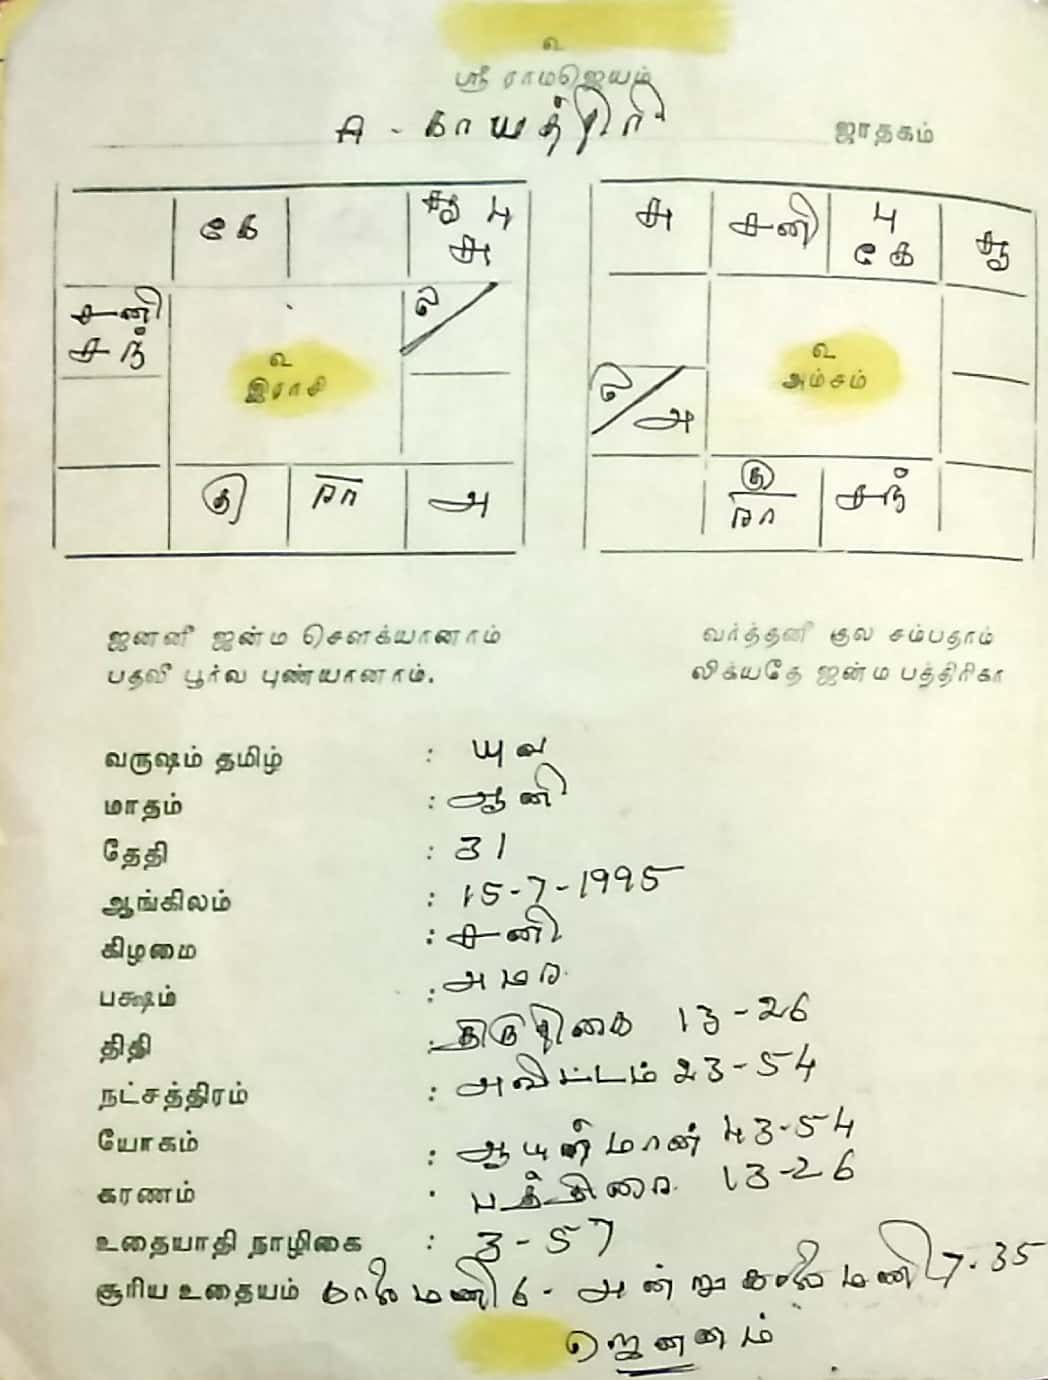 உ
ஸ்ரீ ராமஜெயம்
A - காயத்திரி ஜாதகம்
கே சூ பு சு
சனி சந்
ல
உ
இராசி
கு ரா அ
சு சனி பு கே சூ
உ
அம்சம்
ல அ
கு ரா சந்
ஜனனீ ஜன்ம சௌக்யானாம் வர்த்தனீ குல சம்பதாம்
பதவீ பூர்வ புண்யானாம். லிக்யதே ஜன்ம பத்திரிகா
வருஷம் தமிழ் : யுவ
மாதம் : ஆனி
தேதி : 31
ஆங்கிலம் : 15-7-1995
கிழமை : சனி
பக்ஷம் : அமர
திதி : திருதிகை 13-26
நட்சத்திரம் : அவிட்டம் 23-54
யோகம் : ஆயுஷ்மான் 43-54
கரணம் : பத்திரை 13-26
உதையாதி நாழிகை : 3-57
சூரிய உதையம் காலை மணி 6- அன்று காலை மணி 7.35
ஜெனனம்